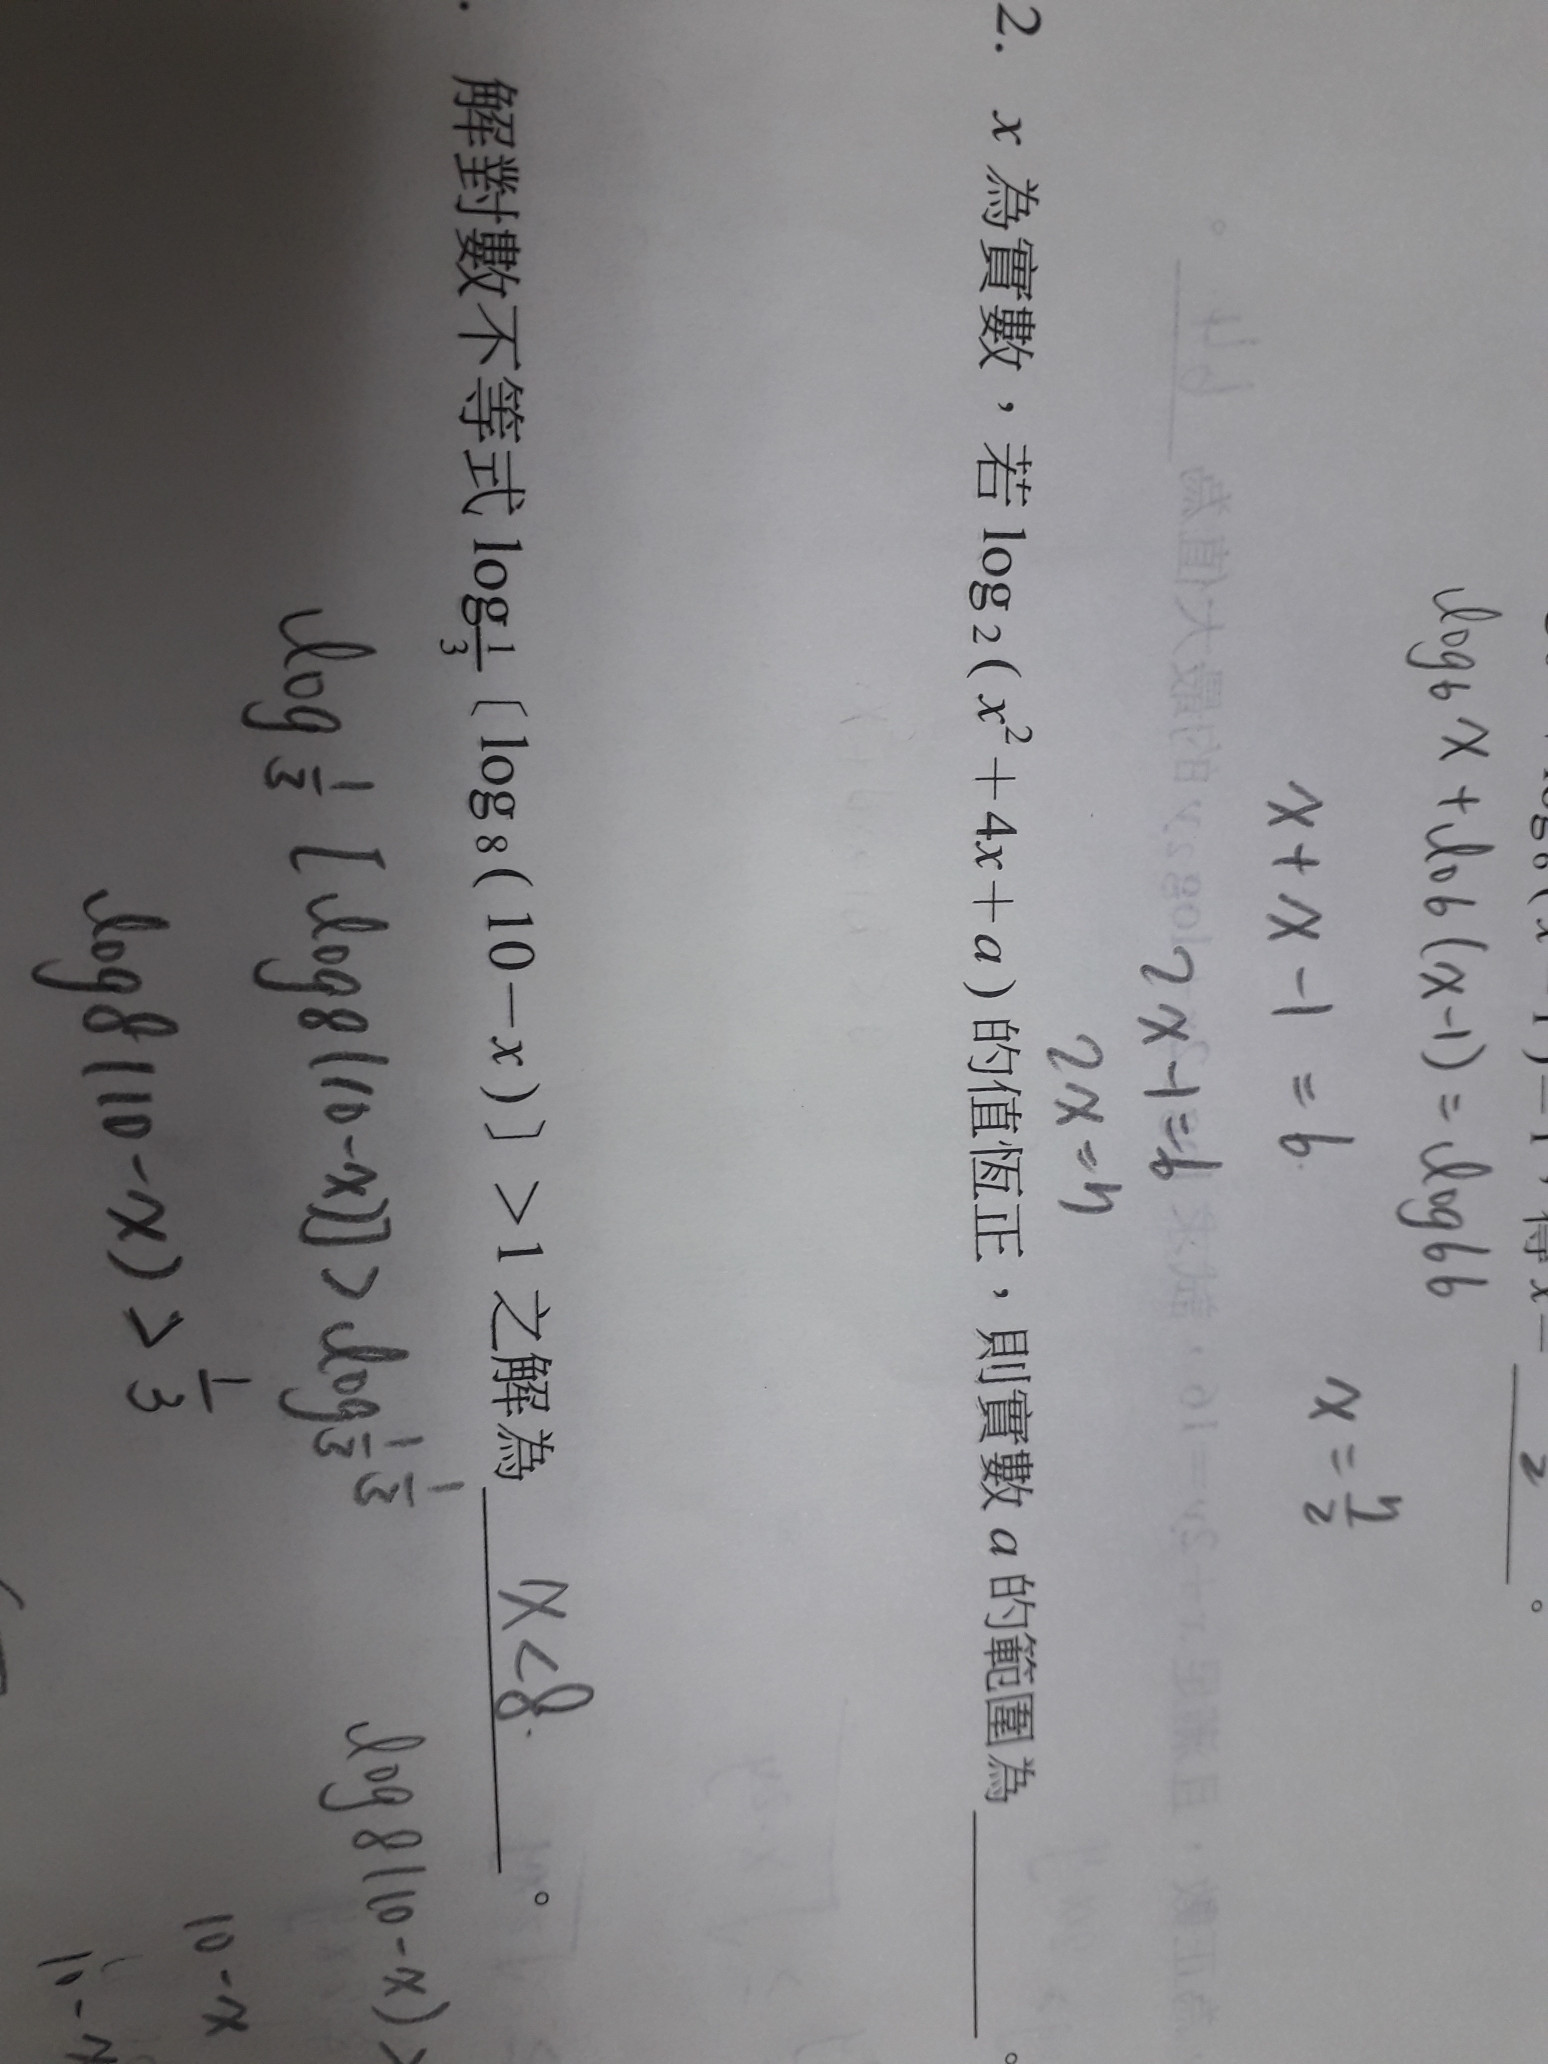 log6 x + log6 (x-1) = log6 6
x + x - 1 = 6
x = 7/2
2x - 1 = 6
2x = 7
2. x 為實數，若 log₂(x²+4x+a)的值恆正，則實數 a 的範圍為______。
解對數不等式 log 1/3〔log₈(10-x)〕>1 之解為 x<8 。
log 1/3 [log8(10-x)] > log 1/3 1/3
log8(10-x) >
log8(10-x) > 1/3
10-x